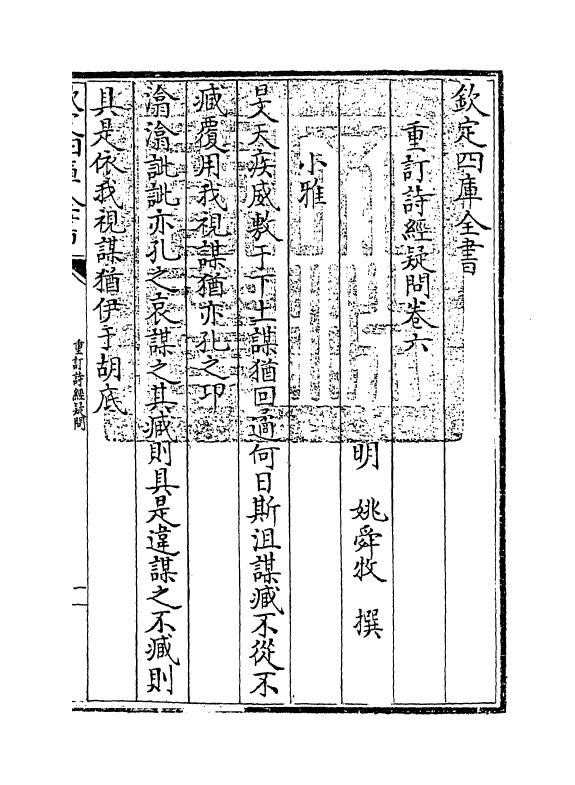 欽定四庫全書
重訂詩經疑問卷六
明 姚舜牧 撰
小雅
旻天疾威敷于下土謀猶回遹何日斯沮謀臧不從不
臧覆用我視謀猶亦孔之卭
潝潝訿訿亦孔之哀謀之其臧則具是違謀之不臧則
具是依我視謀猶伊于胡底
重訂詩經疑問